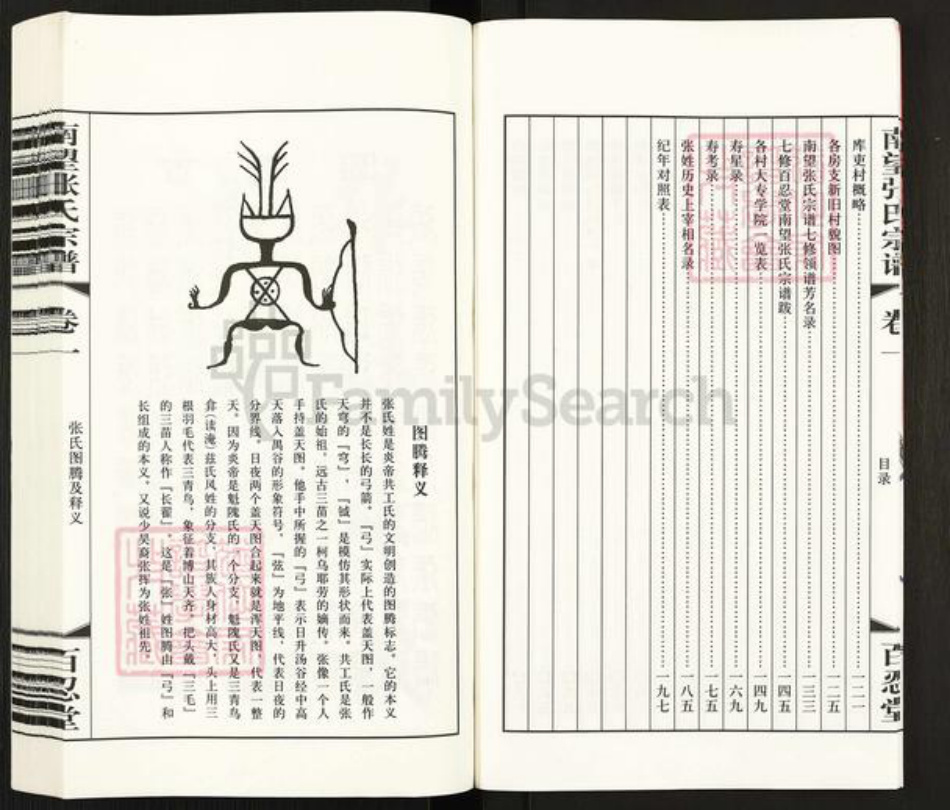 南望张氏宗谱
卷一
目录
百忍堂
库吏村概略 一二一
各房支新旧村貌图 一二五
南望张氏宗谱七修领谱芳名录 一三三
七修百忍堂南望张氏宗谱跋 一四五
各村大专学院一览表 一四九
寿星录 一六九
寿考录 一七五
张姓历史上宰相名录 一八五
纪年对照表 一九七
图腾释义
张氏姓是炎帝共工氏的文明创造的图腾标志。它的本义
并不是长长的弓箭。『弓』实际上代表盖天图,一般作
天穹的『穹』,『弧』是模仿其形状而来。共工氏是张
氏的始祖,远古三苗之一柯乌耶劳的嫡传。张像一个人
手持盖天图。他手中所握的『弓』表示日升汤谷经中高
天落入禺谷的形象符号。『弦』为地平线,代表日夜的
分界线。日夜两个盖天图合起来就是浑天图,代表一整
天。因为炎帝是魁隗氏的一个分支,魁隗氏又是三青鸟
弇(读淹)兹氏风姓的分支,其族人身材高大,头上用三
根羽毛代表三青鸟,象征着博山天齐,把头戴『三毛』
的三苗人称作『长翟』。这是『张』姓图腾由『弓』和
长组成的本义。又说少昊裔张挥为张姓祖先。
南望张氏宗谱
卷一
张氏图腾及释义
百忍堂
FamilySearch